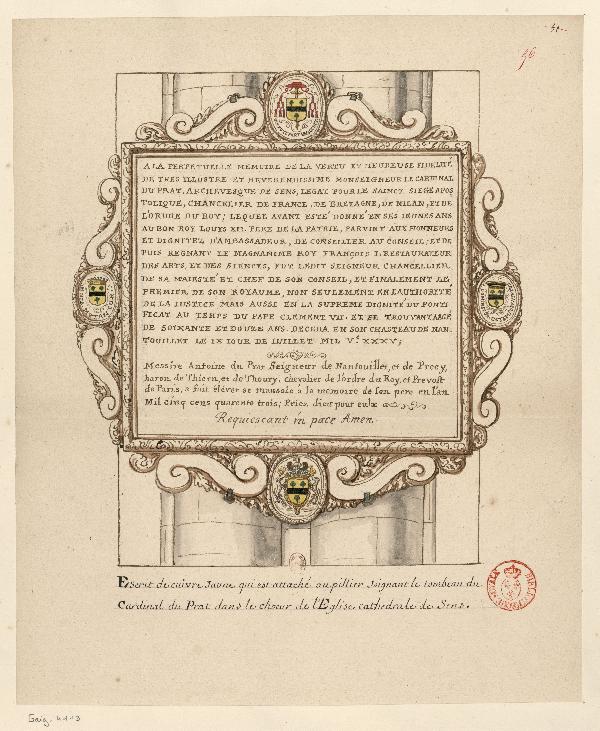 51.
56
A LA PERPETUELLE MEMOIRE DE LA VERTU ET HEUREUSE FIDELITÉ
DE TRES ILLUSTRE ET REVERENDISSIME MONSEIGNEUR LE CARDINAL
DU PRAT, ARCHEVESQUE DE SENS, LEGAT POUR LE SAINCT SIEGE APOS
TOLIQUE, CHANCELIER DE FRANCE, DE BRETAGNE, DE MILAN, ET DE
L'ORDRE DU ROY; LEQUEL AYANT ESTÉ DONNÉ EN SES IEUNES ANS
AU BON ROY LOUYS XII. PERE DE LA PATRIE, PARVINT AUX HONNEURS
ET DIGNITEZ D'AMBASSADEUR, DE CONSEILLER AU CONSEIL; ET DE
PUIS REGNANT LE MAGNANIME ROY FRANÇOIS I. RESTAURATEUR
DES ARTS, ET DES SIENCES, FUT LEDIT SEIGNEUR CHANCELLIER
DE SA MAIESTÉ ET CHEF DE SON CONSEIL, ET FINALEMENT LE
PREMIER DE SON ROYAUME, NON SEULEMENT EN L'AUTHORITÉ
DE LA IUSTICE MAIS AUSSI EN LA SUPREME DIGNITÉ DU PONTI
FICAT AU TEMPS DU PAPE CLEMENT VII. ET SE TROUVANT AAGÉ
DE SOIXANTE ET DOUZE ANS. DECEDA EN SON CHASTEAU DE NAN
TOUILLET LE IX IOUR DE IUILLET MIL Vᶜ XXXV;
Messire Antoine du Prat Seigneur de Nantouillet, et de Precy,
baron de Thiern, et de Thoury, chevalier de l'ordre du Roy, et Prevost
de Paris, a fait elever se mausole à la memoire de son pere en l'an
Mil cinq cens quarente trois; Priez dieu pour eulx
Requiescant in pace Amen.
Escrit de cuivre Jaune qui est attaché au pillier Joignant le tombeau du
Cardinal du Prat dans le chœur de l'Eglise cathedrale de Sens.
Gaig. 4113